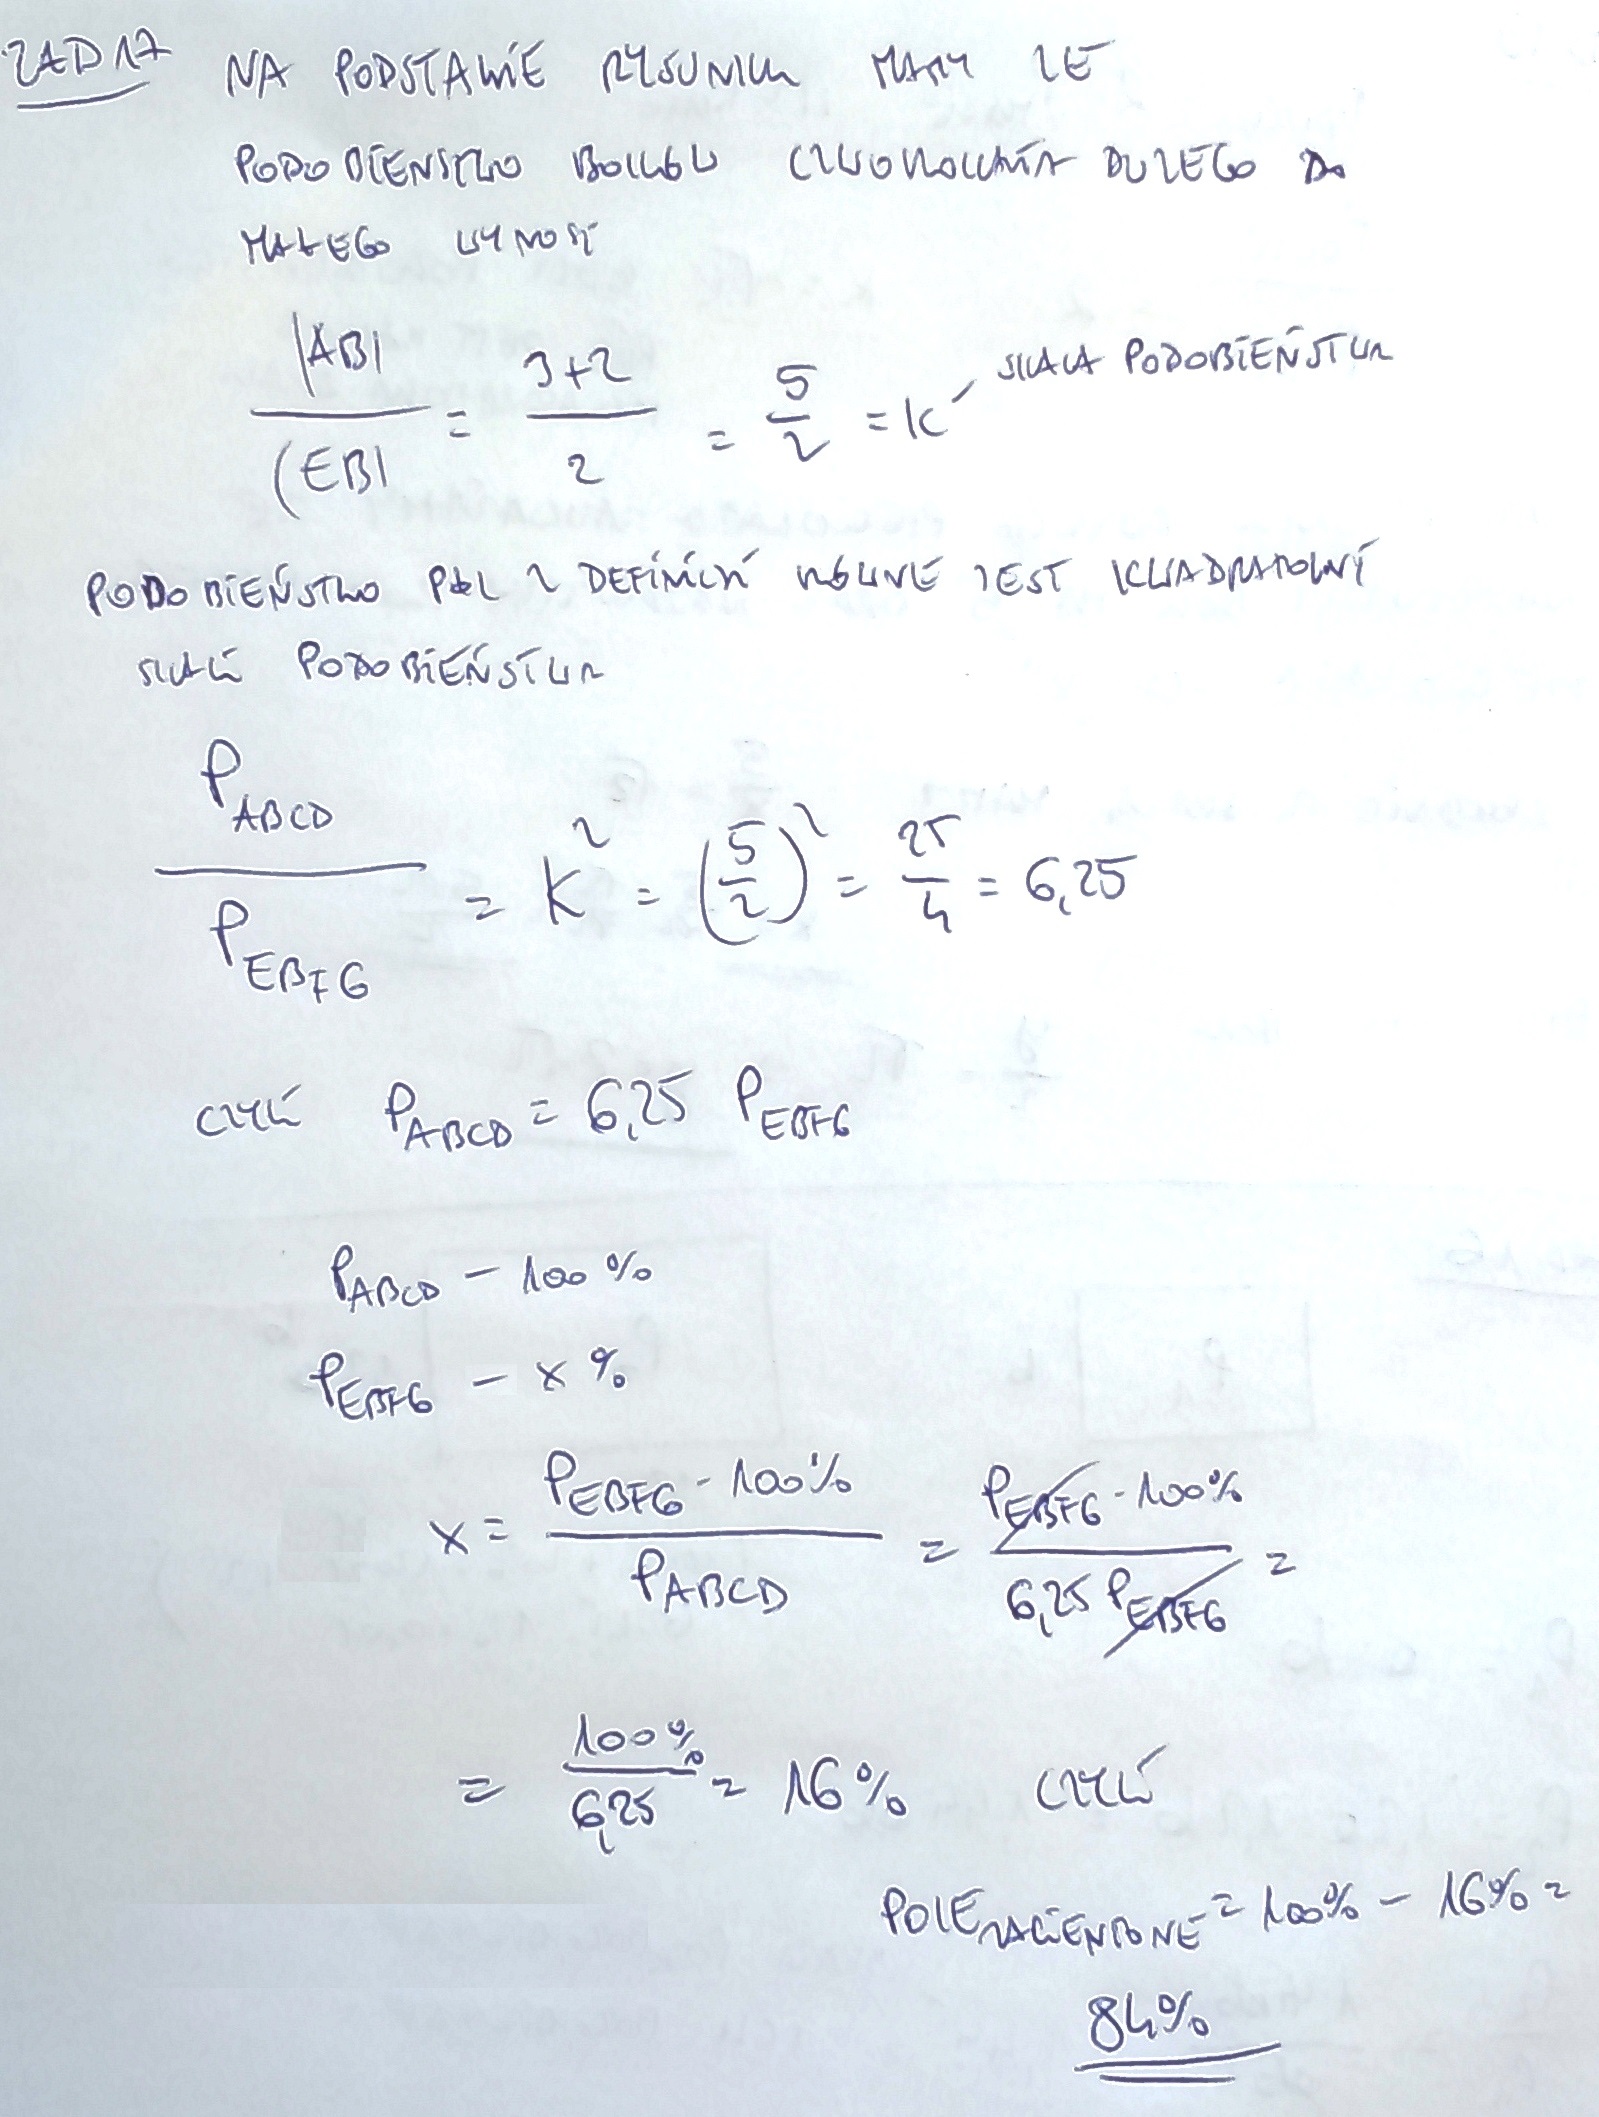 ZAD 17 NA PODSTAWIE RYSUNKU MAMY ZE
PODOBIENSTWO BOKÓW CZWOROKĄTA DUZEGO DO
MAŁEGO WYNOSI
|AB| / |EB| = 3+2 / 2 = 5/2 = K SKALA PODOBIEŃSTWA
PODOBIEŃSTWO PÓL Z DEFINICJI RÓWNE JEST KWADRATOWI
SKALI PODOBIEŃSTWA
P_ABCD / P_EBFG = K² = (5/2)² = 25/4 = 6,25
CZYLI P_ABCD = 6,25 P_EBFG
P_ABCD - 100%
P_EBFG - x %
x = P_EBFG · 100% / P_ABCD = P_EBFG · 100% / 6,25 P_EBFG =
= 100% / 6,25 = 16% CZYLI
POLE ZACIENIONE = 100% - 16% =
84%